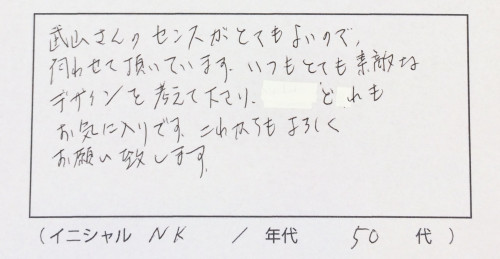 武山さんのセンスがとてもよいので、
伺わせて頂いています。いつもとても素敵な
デザインを考えて下さり、どれも
お気に入りです。これからもよろしく
お願い致します。
(イニシャル NK / 年代 50 代)